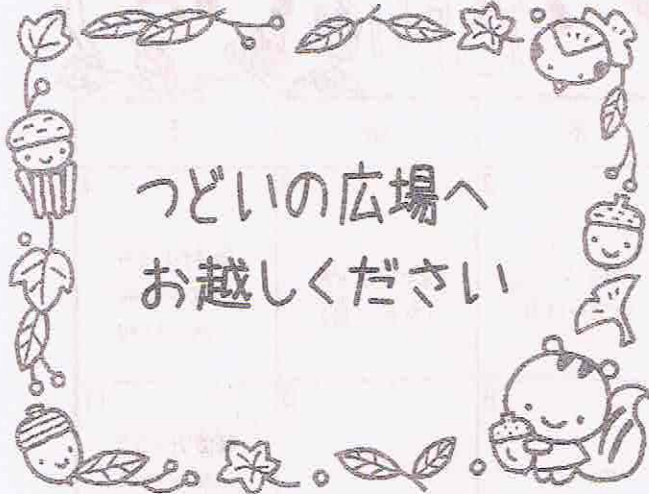 つどいの広場へ
お越しください